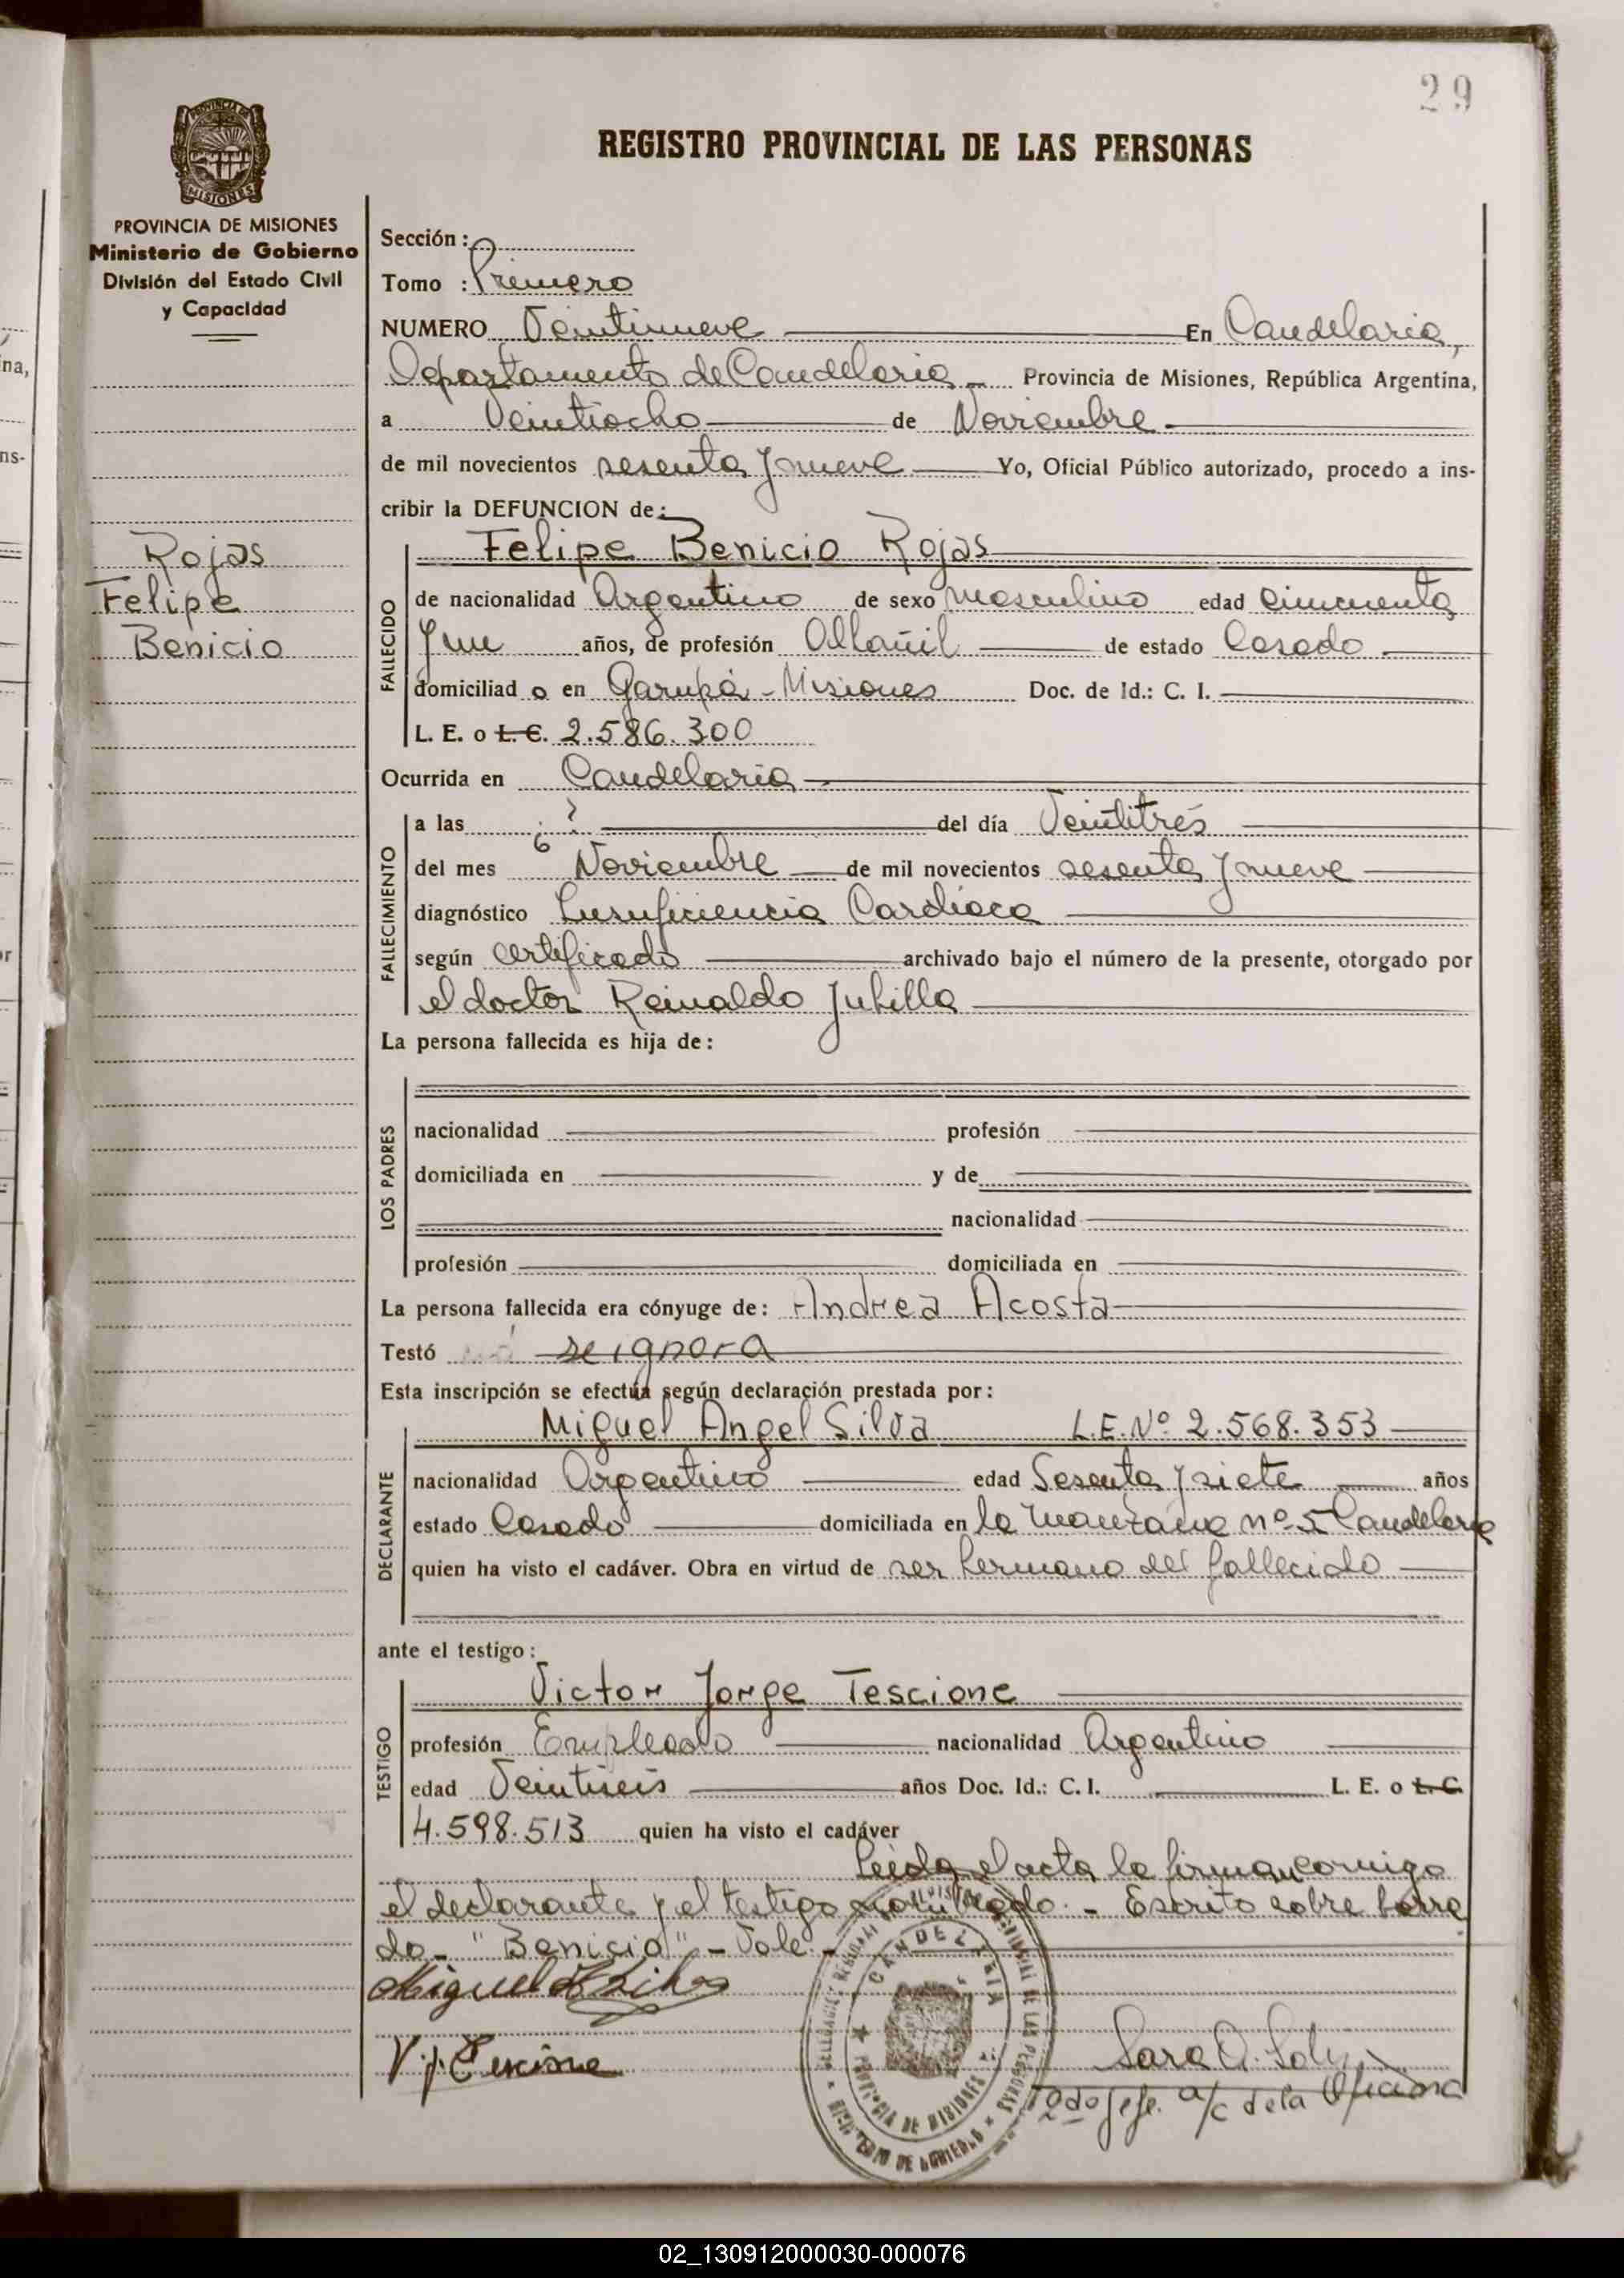 29
REGISTRO PROVINCIAL DE LAS PERSONAS
PROVINCIA DE MISIONES
Ministerio de Gobierno
División del Estado Civil
y Capacidad
Rojas
Felipe
Benicio
Sección:
Tomo : Primero
NUMERO Veintinueve En Candelaria,
Departamento de Candelaria Provincia de Misiones, República Argentina,
a Veintiocho de Noviembre
de mil novecientos sesenta y nueve Yo, Oficial Público autorizado, procedo a ins-
cribir la DEFUNCION de:
Felipe Benicio Rojas
FALLECIDO
de nacionalidad Argentino de sexo masculino edad cincuenta
y un años, de profesión Albañil de estado Casado
domiciliado en Garupá - Misiones Doc. de Id.: C. I.
L. E. o L. C. 2.586.300
Ocurrida en Candelaria
FALLECIMIENTO
a las ? del día Veintitrés
del mes Noviembre de mil novecientos sesenta y nueve
diagnóstico Insuficiencia Cardiaca
según certificado archivado bajo el número de la presente, otorgado por
el doctor Reinaldo Jubilla
La persona fallecida es hija de:
LOS PADRES
nacionalidad profesión
domiciliada en y de
nacionalidad
profesión domiciliada en
La persona fallecida era cónyuge de: Andrea Acosta
Testó se ignora
Esta inscripción se efectúa según declaración prestada por:
Miguel Angel Silva L.E.Nº 2.568.353
DECLARANTE
nacionalidad Argentino edad Sesenta y siete años
estado Casado domiciliada en la manzana nº 5 Candelaria
quien ha visto el cadáver. Obra en virtud de ser hermano del fallecido
ante el testigo:
Victor Jorge Tescione
TESTIGO
profesión Empleado nacionalidad Argentino
edad Veintiseis años Doc. Id.: C. I. L. E. o L. C
4.598.513 quien ha visto el cadáver
Leida el acta la firman conmigo
el declarante y el testigo nombrado. - Escrito sobre borra
do - "Benicio" - Vale -
Miguel A Silva
V. J. Tescione
CANDELARIA
PROVINCIA DE MISIONES
Sara A.
2do Jefe. a/c de la Oficina
02_130912000030-000076